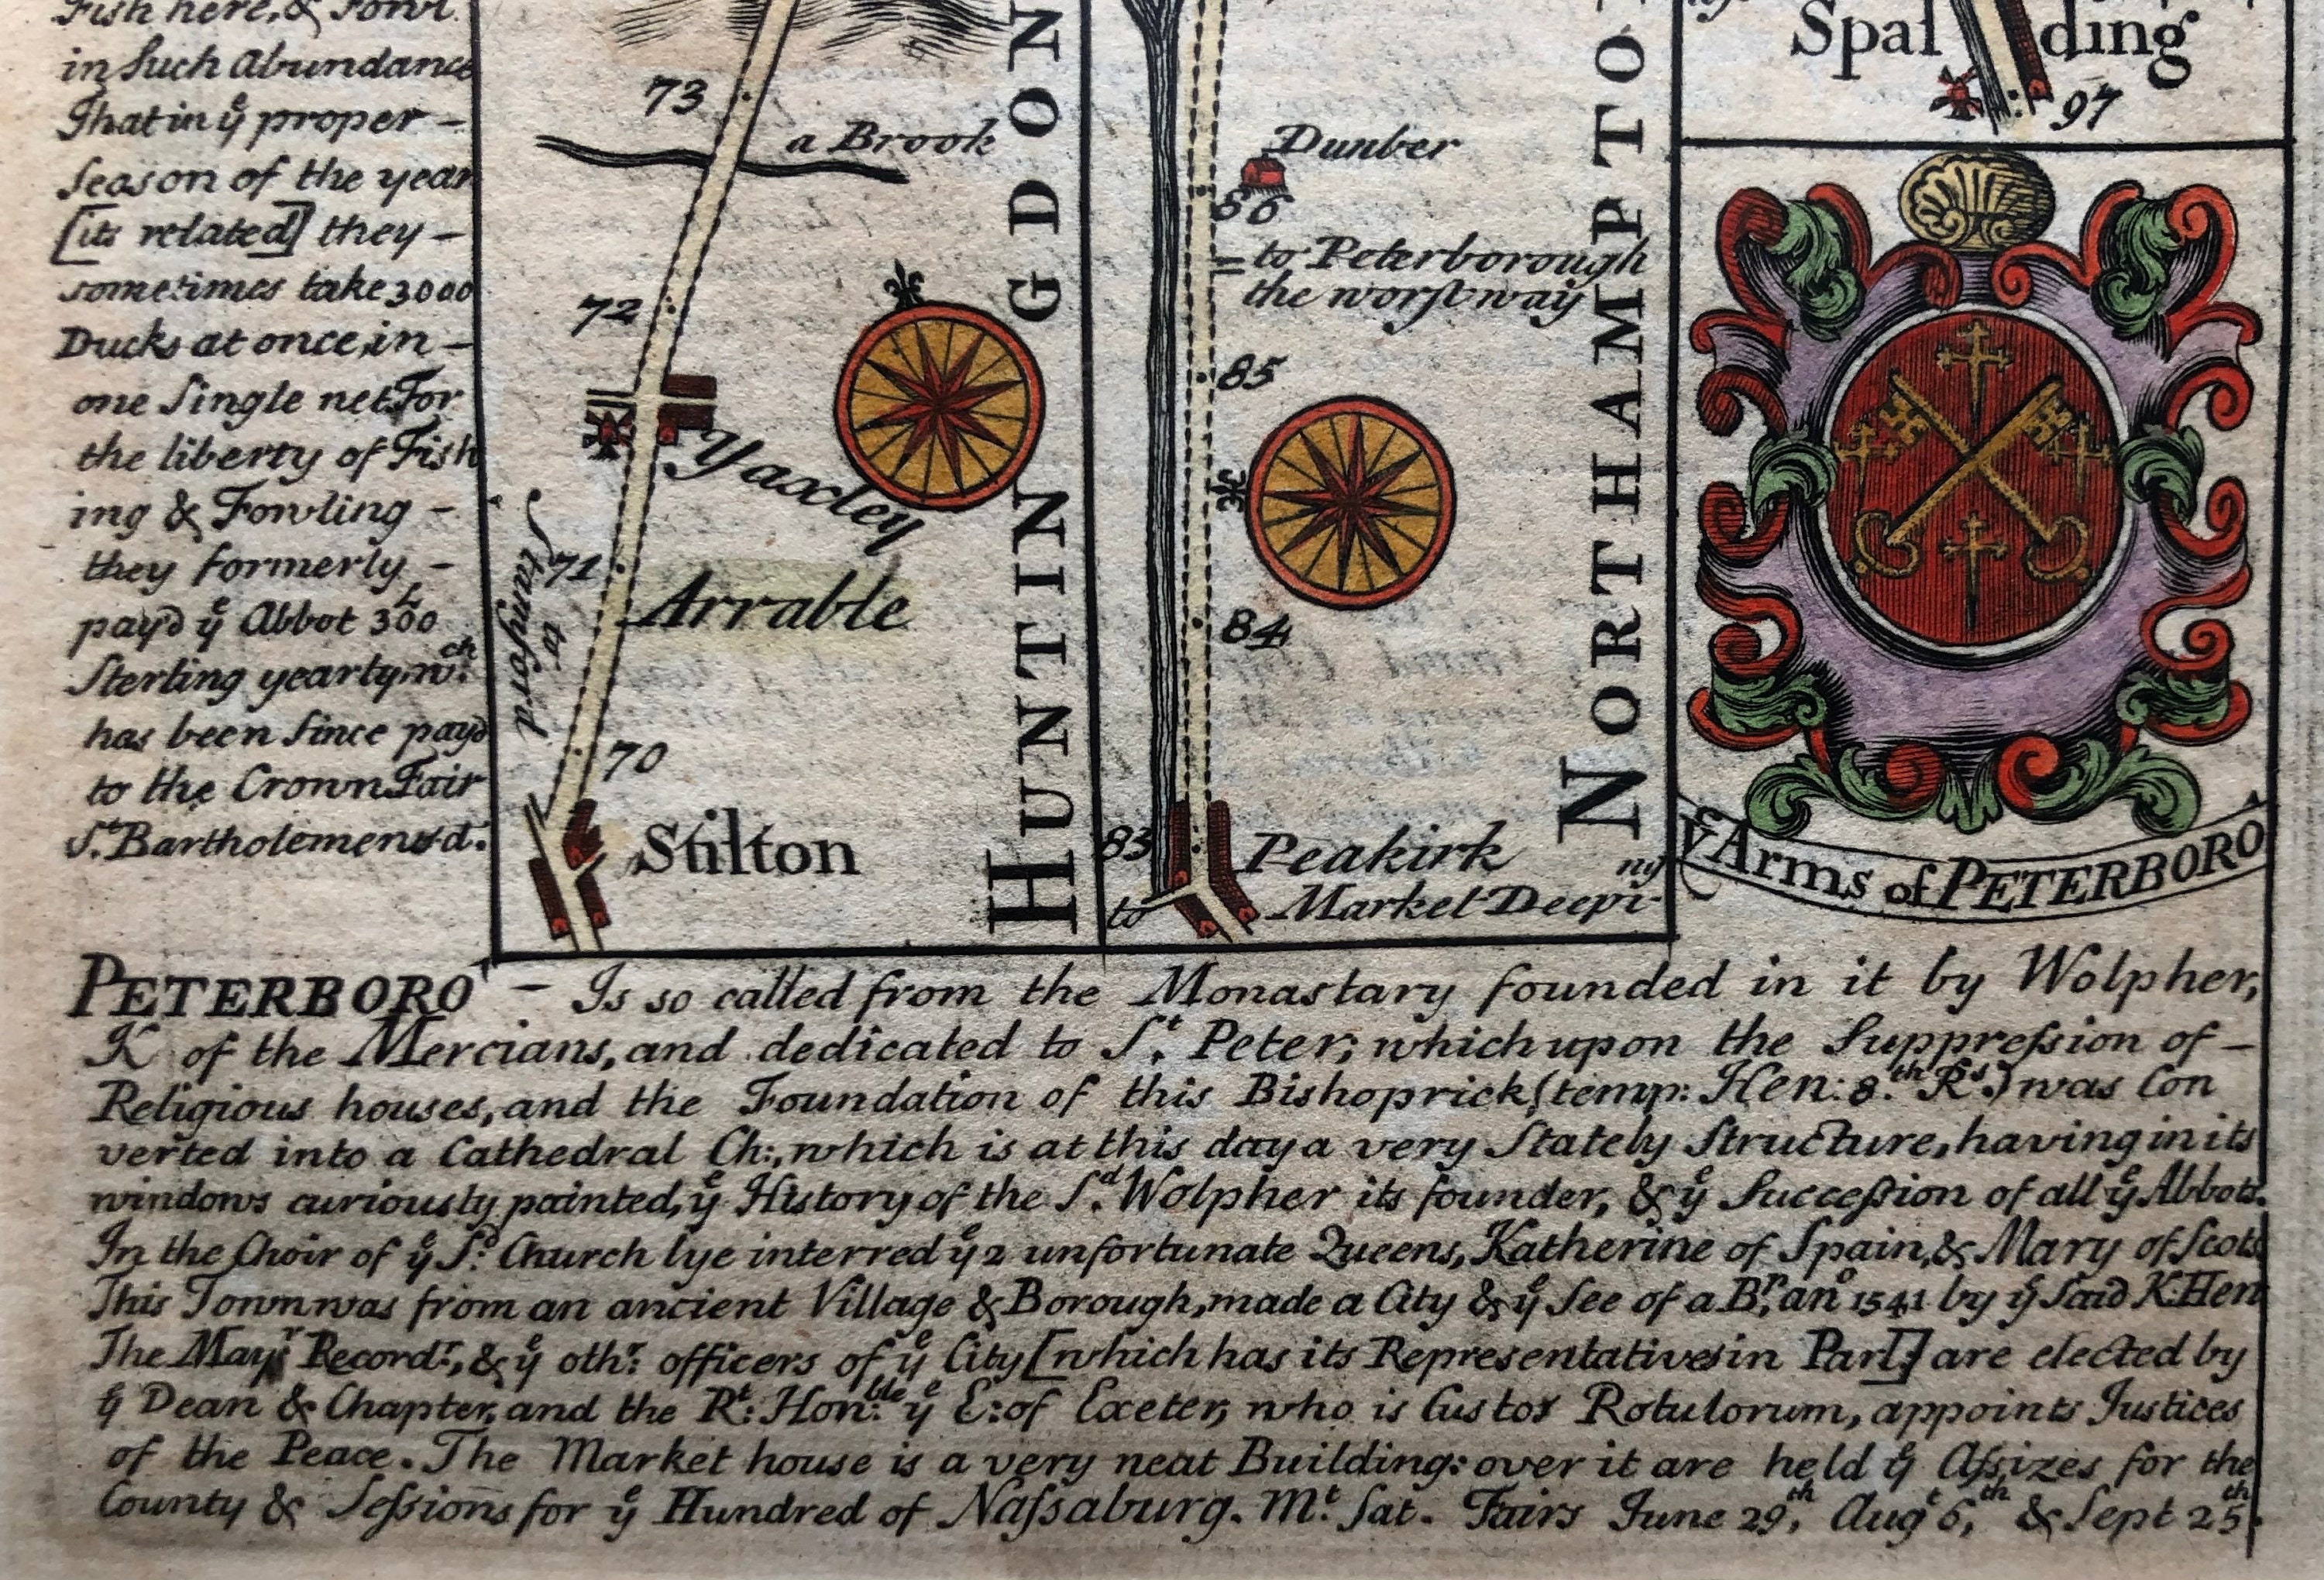 Fish here, & Fowl
in Such abundance
That in yͤ proper –
Season of the year
[its related] they –
sometimes take 3000
Ducks at once, in –
one Single net. For
the liberty of Fish
ing & Fowling –
they formerly –
pay'd yͤ Abbot 300ᴸ
Sterling yearly, wᶜʰ.
has been Since payd
to the Crown. Fair
Sᵗ. Bartholomews d.
73
a Brook
72
Yaxley
71
to Stamford
Arrable
70
Stilton
HUNTINGDON
Dunber
86
to Peterborough
the worst way
85
84
83
Peakirk
to
Market Deeping
NORTHAMPTO
Spalding
97
yͤ Arms of PETERBORO
PETERBORO' – Is so called from the Monastary founded in it by Wolpher,
K of the Mercians, and dedicated to Sᵗ. Peter; which upon the Suppreſsion of –
Religious houses, and the Foundation of this Bishoprick (temp: Hen: 8.ᵗʰ Rˢ.) was Con
verted into a Cathedral Ch:, which is at this day a very Stately Structure, having in its
windows curiously painted, yͤ History of the Sᵈ. Wolpher its founder, & yͤ Succeſsion of all yͤ Abbots.
In the Choir of yͤ Sᵈ. Church lye interred yͤ 2 unfortunate Queens, Katherine of Spain, & Mary of Scots
This Town was from an ancient Village & Borough, made a City & yͤ See of a Bᵖ. anᵒ 1541 by yͤ Said K. Hen
The Mayʳ Recordʳ:, & yͤ othʳ: officers of yͤ City [which has its Representatives in Parl.] are elected by
yͤ Dean & Chapter, and the Rᵗ: Honᵇˡᵉ: yͤ E: of Exeter, who is Custos Rotulorum, appoints Justices
of the Peace. The Market house is a very neat Building: over it are held yͤ Aſsizes for the
County & Seſsions for yͤ Hundred of Naſsaburg. Mᵗ. Sat. Fairs June 29ᵗʰ, Augᵗ 6ᵗʰ, & Sept 25ᵗʰ.